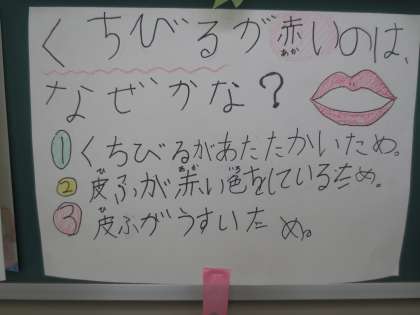 くちびるが赤いのは、
なぜかな？
①くちびるがあたたかいため。
②皮ふが赤い色をしているため。
③皮ふがうすいため。